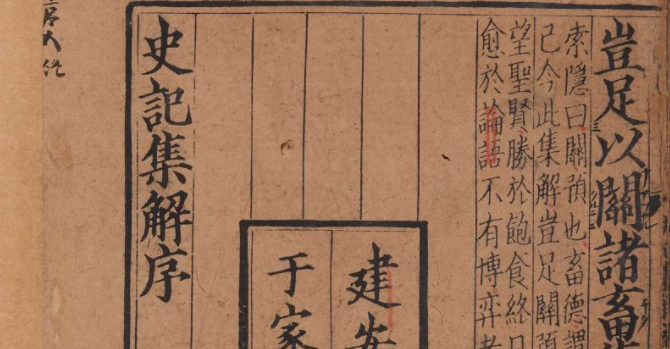 豈足以關諸畜
索隱曰關預也畜德謂
已今此集解豈足關預
望聖賢勝於飽食終日
愈於論語不有博弈者
建安
于家
史記集解序